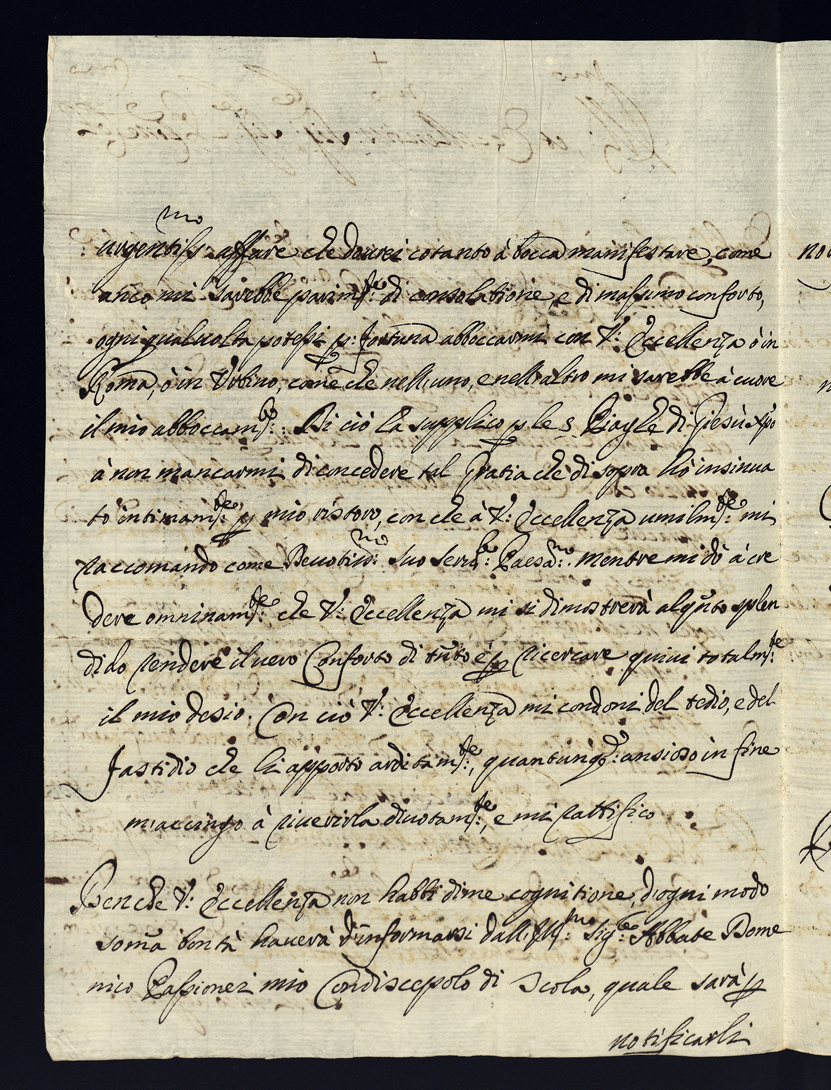 urgentiss.mo affare che dovrei cotanto à bocca manifestare, come
anco mi sarebbe parim.te di consolatione, e di massimo conforto,
ogni qual volta potessi p. fortuna abboccarmi con V: Eccellenza ò in
Roma, ò in Urbino, come che nell'uno, e nell'altro mi sarebbe à cuore
il mio abboccam.to: Di ciò La supplico p le 5 Piaghe di Giesù Xpo
à non mancarmi di concedere tal Gratia che di sopra hò insinua
to intimam.te p mio ristoro, con che à V: Eccellenza umilm.te mi
raccomando come Devotiss.mo suo Serv.e Paesa.no. Mentre mi dò à cre
dere omninam.te che V: Eccellenza mi si dimostrerà alq.to splen
dido rendere il vero Conforto di tutto e p ricercare quivi totalm.te
il mio desio. Con ciò V: Eccellenza mi condoni del tedio, e del
fastidio che li apporto arditam.te, quantunq.e ansioso in fine
m'accingo à riverirla divotam.te, e mi rattifico
Benche V: Eccellenza non habbi di me cognitione, d'ogni modo
somma bontà haverà d'informarsi dall'Ill.mo Sig.re Abbate Dome
nico Passionei mio Condiscepolo di Scola, quale sarà p
notificarli